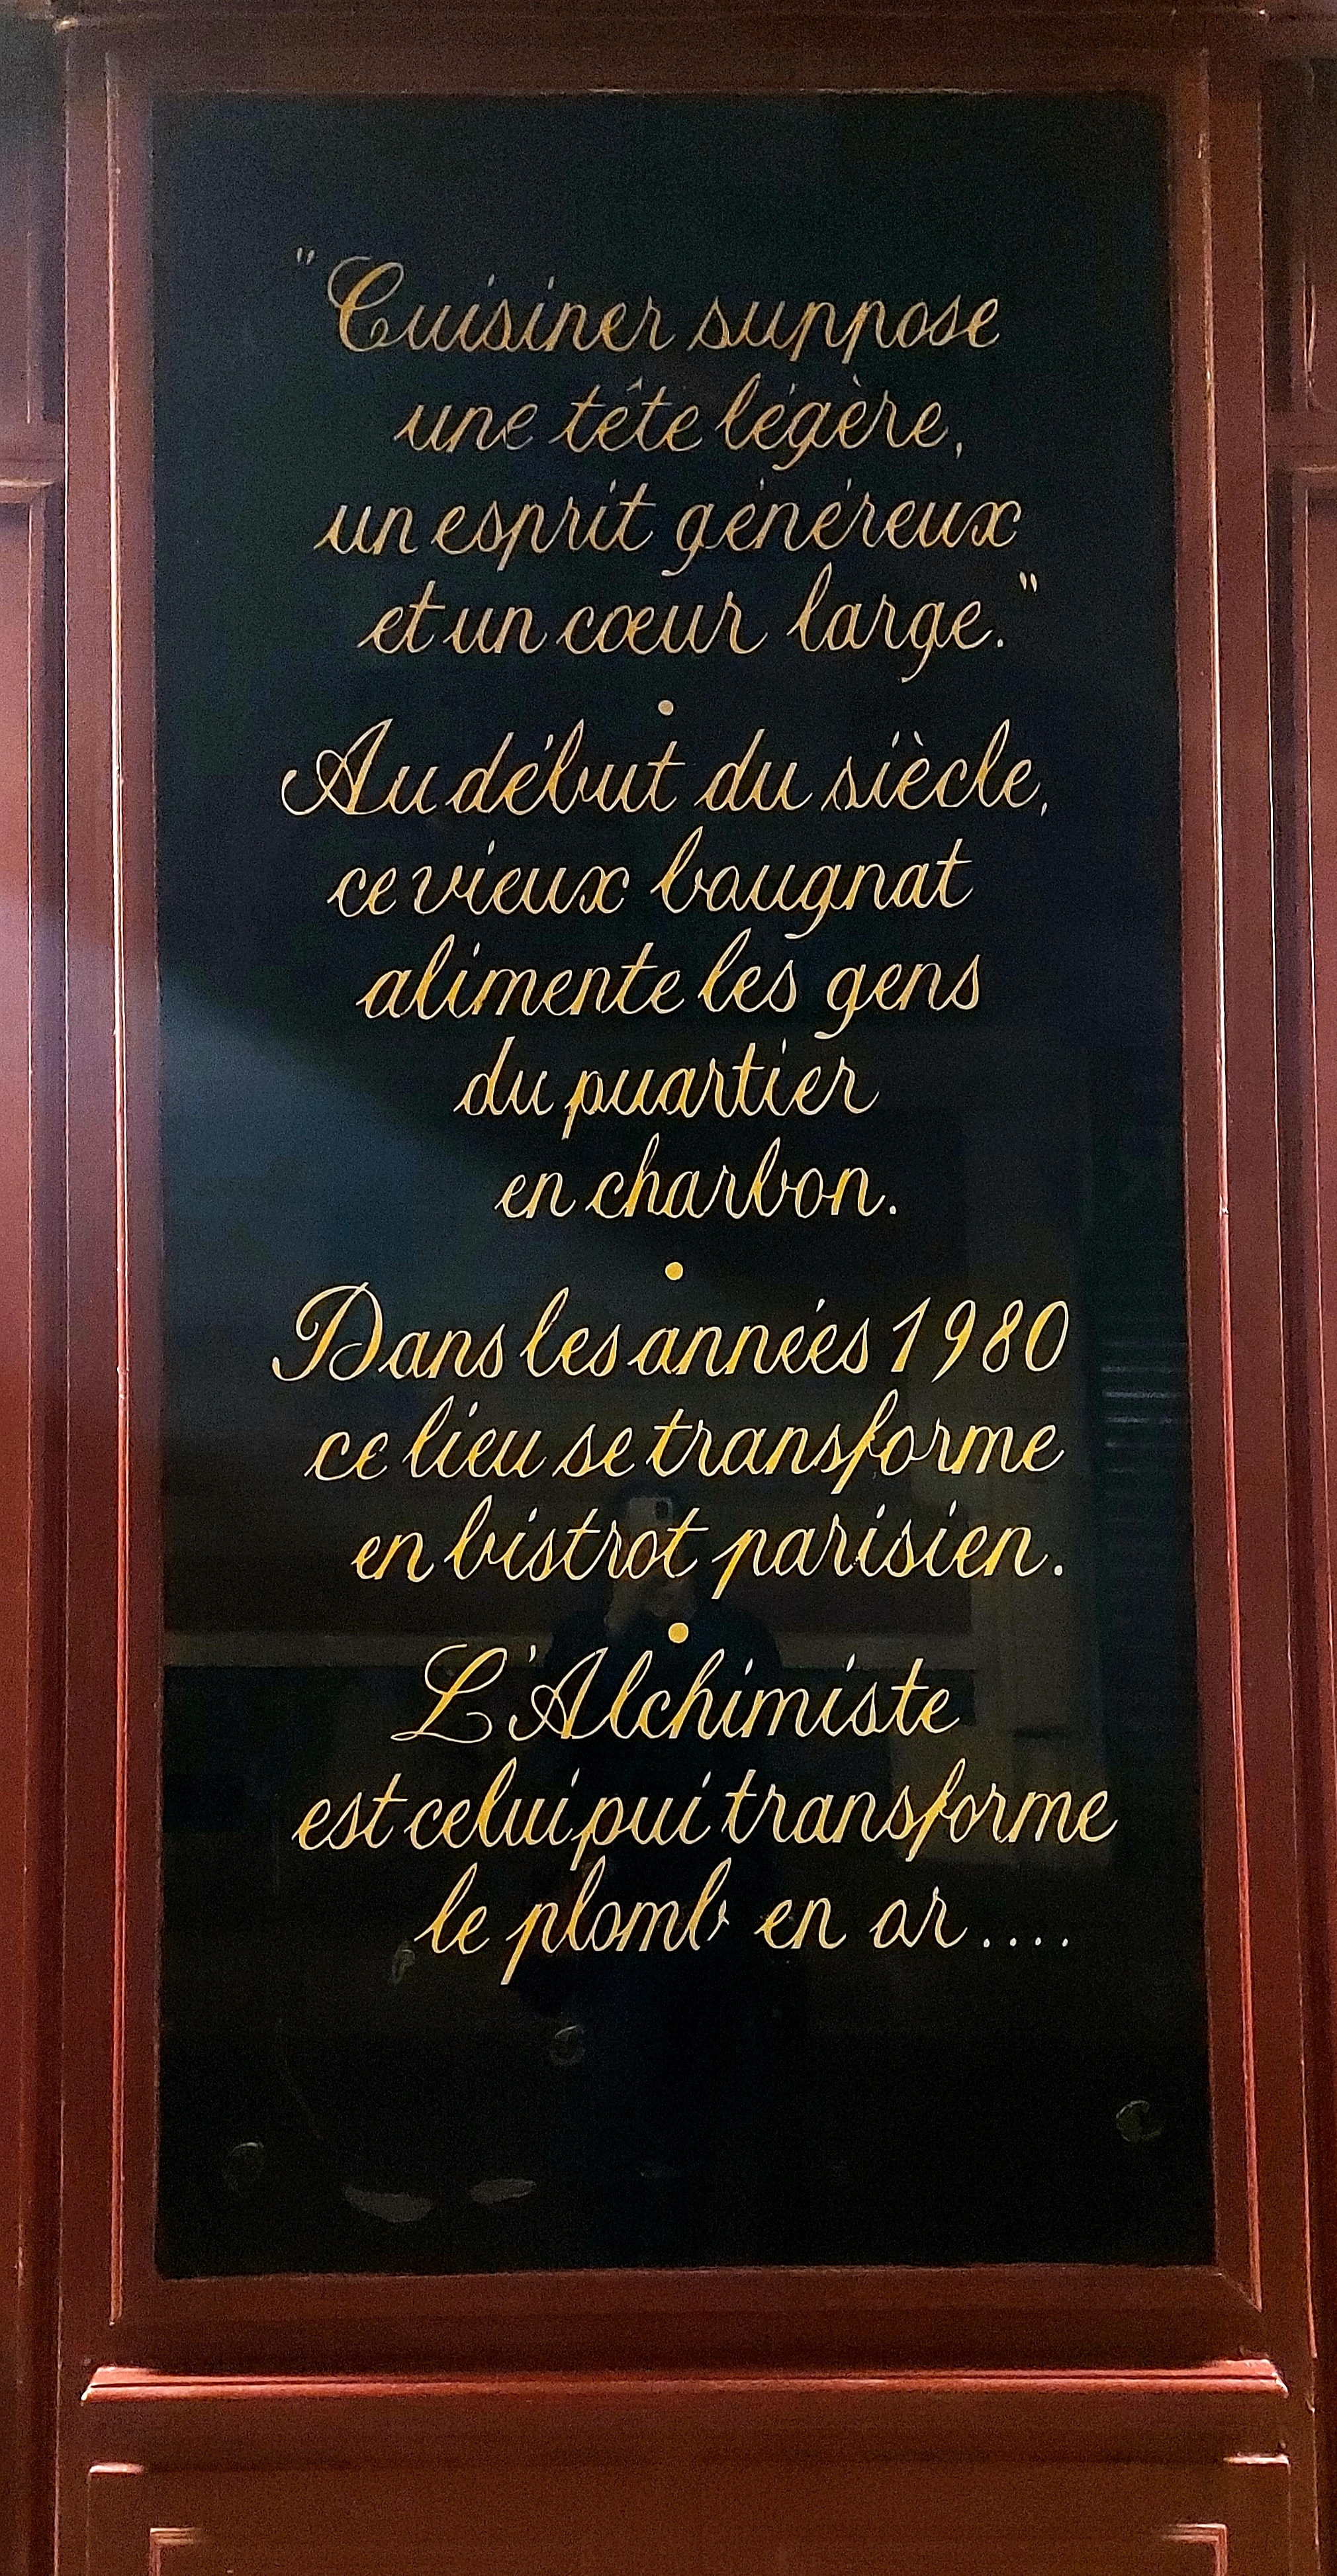 "Cuisiner suppose
une tête légère,
un esprit généreux
et un cœur large."
Au début du siècle,
ce vieux bougnat
alimente les gens
du puartier
en charbon.
Dans les années 1980
ce lieu se transforme
en bistrot parisien.
L'Alchimiste
est celui pui transforme
le plomb en or....